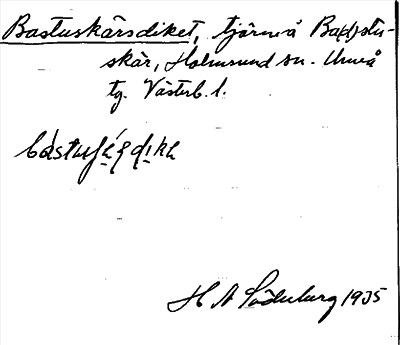 Bastuskärsdiket, tjärn på Ba(d)stu-
skär, Holmsund sn. Umeå
tg. Västerb. l.
H A Söderberg 1935